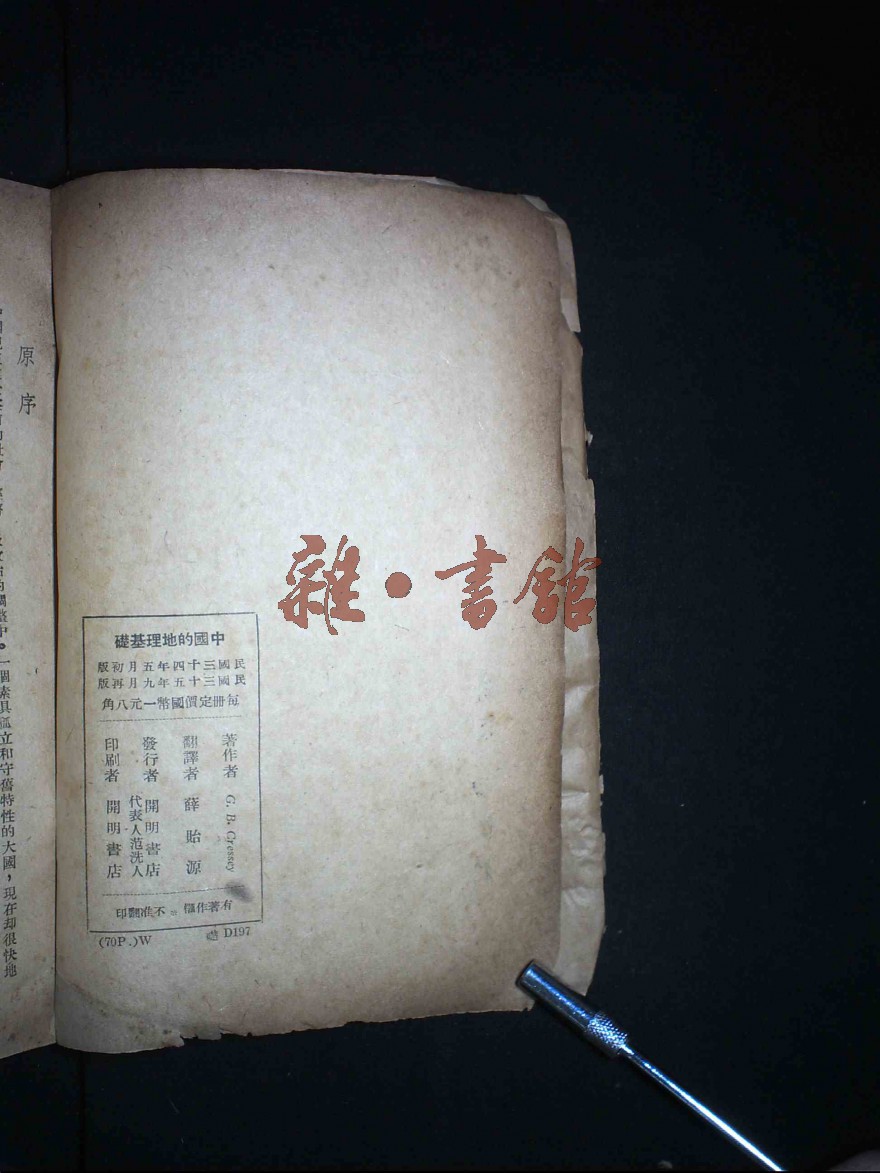 中國的地理基礎
民國三十四年五月初版
民國三十五年九月再版
每冊定價國幣一元八角
著作者 G. B. Cressey
翻譯者 薛貽源
發行者 開明書店
代表人范洗人
印刷者 開明書店
有著作權 = 不准翻印
(70P.)W D197
雜·書館
原序
一個素具孤立和守舊特性的大國，現在却很快地